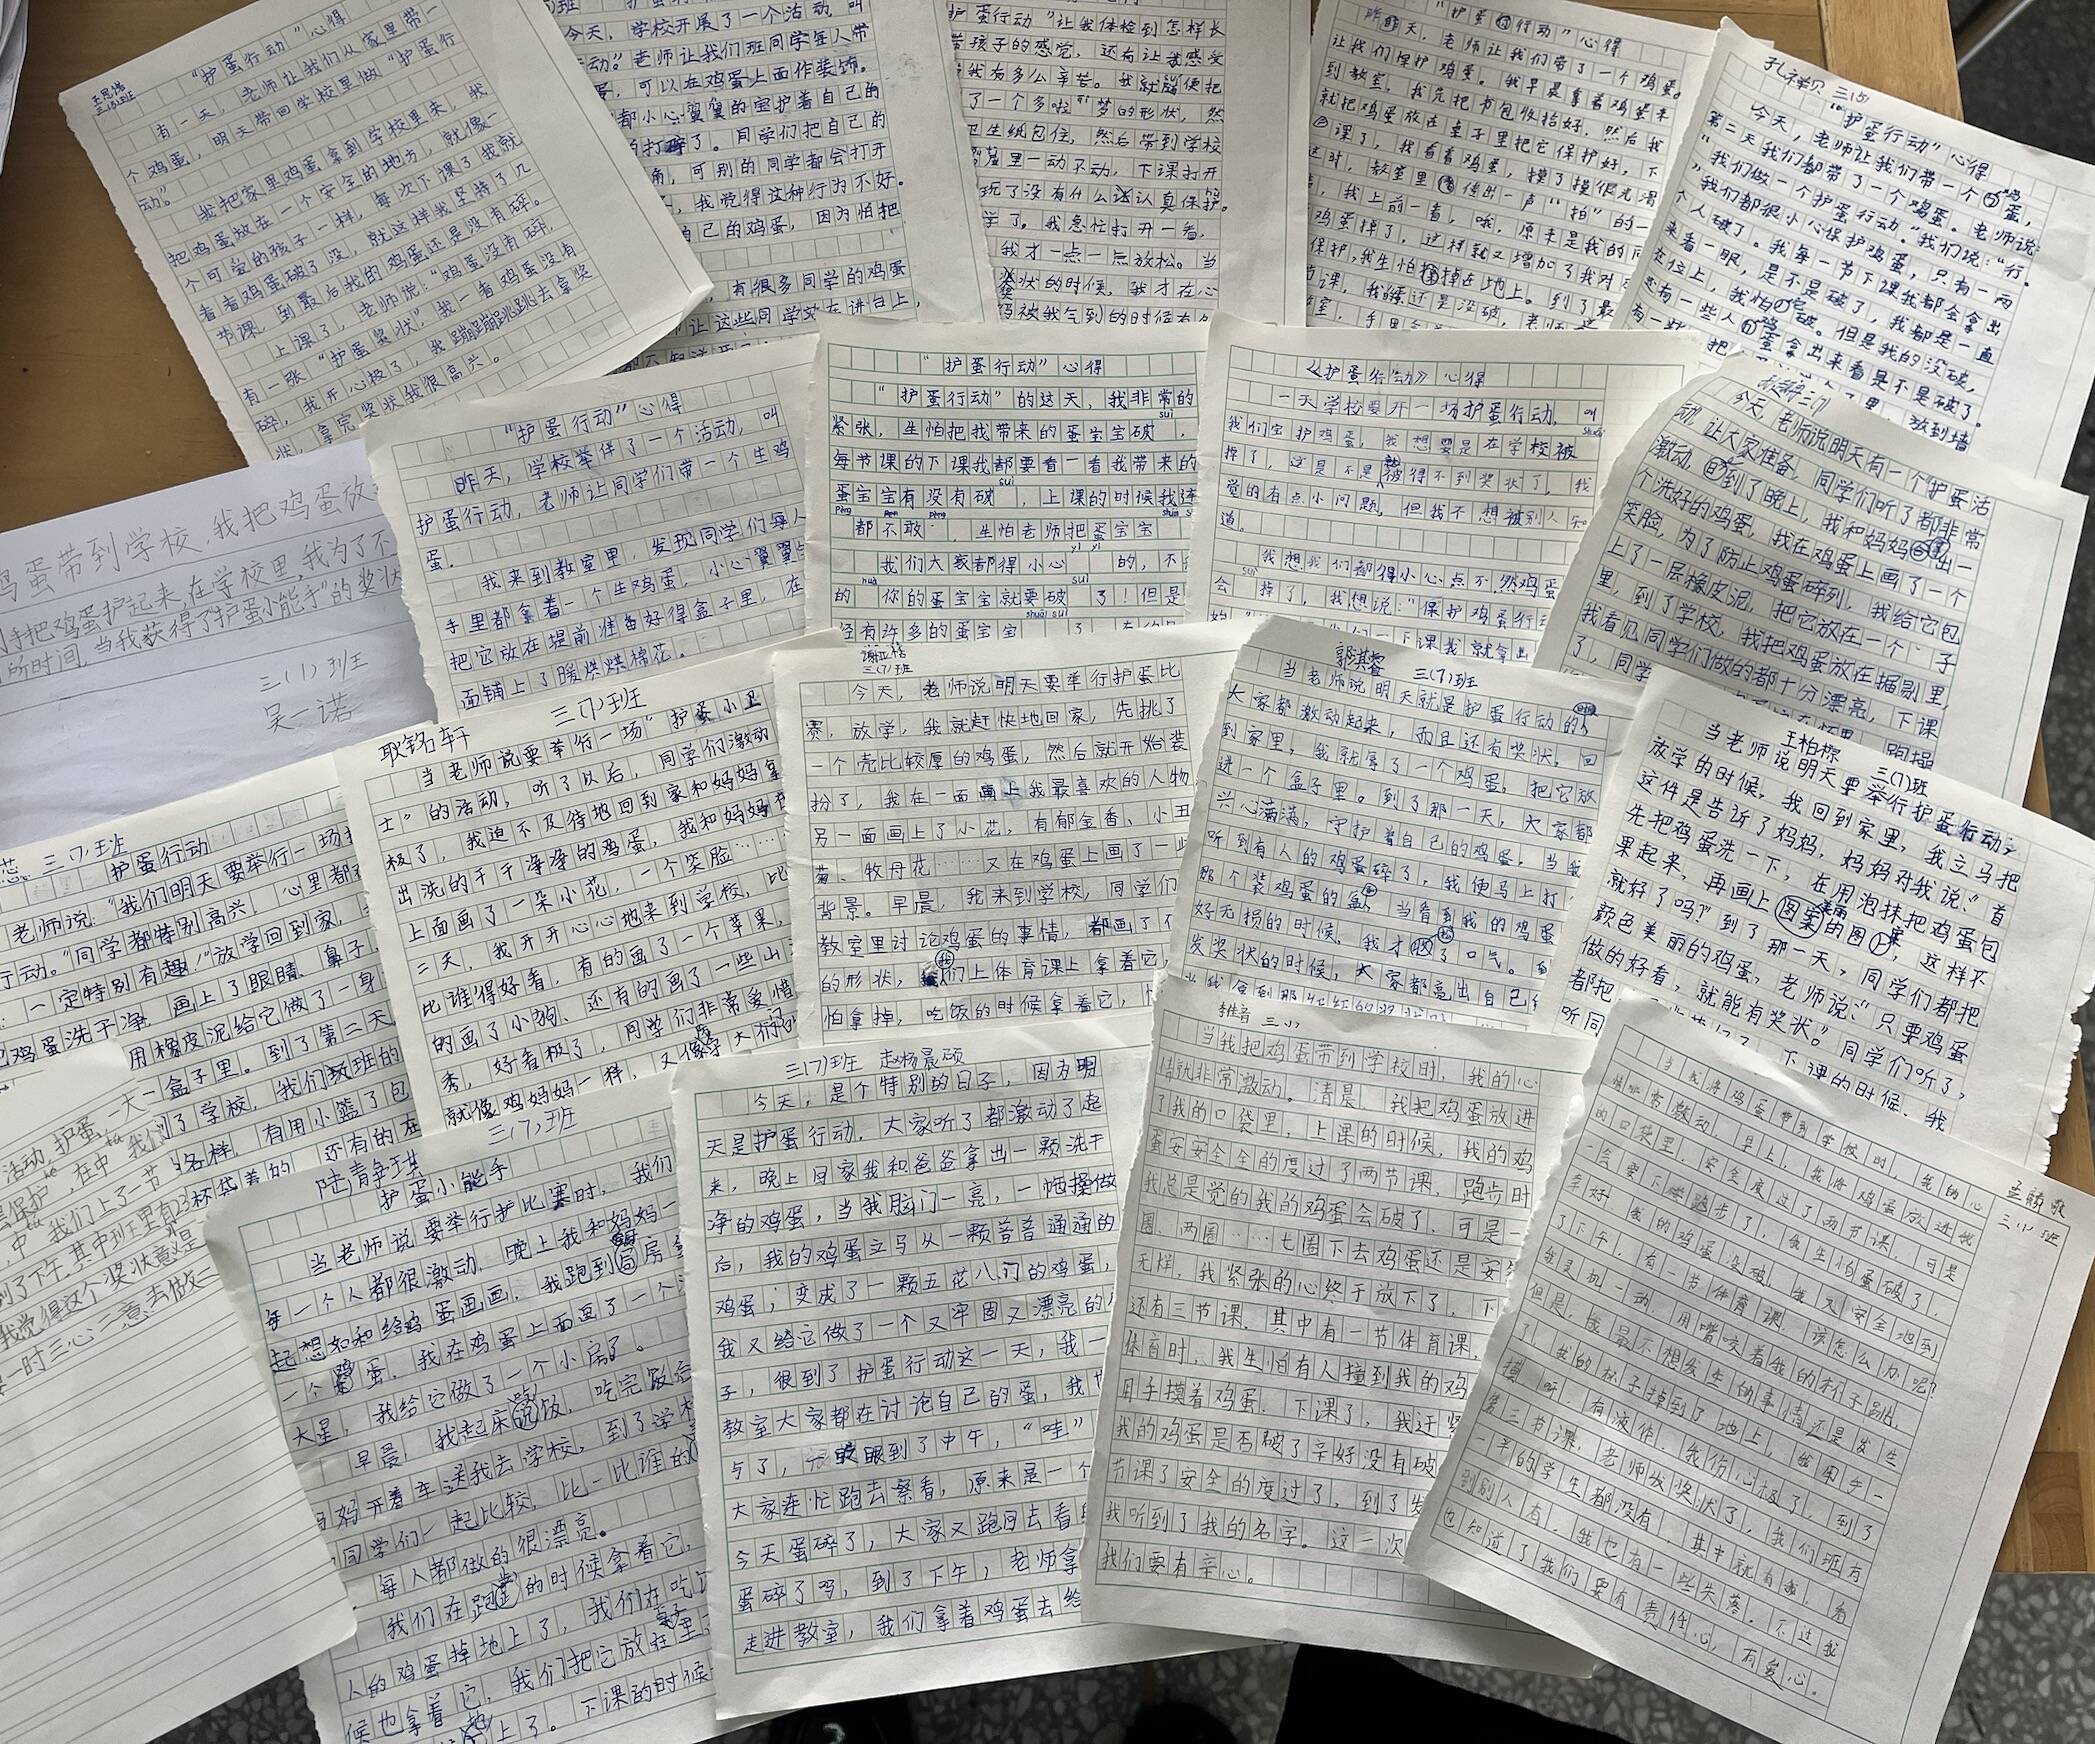 王思诺
三(5)班
"护蛋行动"心得
有一天,老师让我们从家里带一
个鸡蛋,明天带回学校里做"护蛋行
动"。
我把家里鸡蛋拿到学校里来,我
把鸡蛋放在一个安全的地方,就像一
个可爱的孩子一样,每次下课了我就
看看鸡蛋破了没,就这样我坚持了几
节课,到最后我的鸡蛋还是没有碎。
上课了,老师说:"鸡蛋没有碎,
有一张"护蛋奖状"我一看鸡蛋没有
碎,我开心极了,我蹦蹦跳跳去拿奖
状,拿完奖状我很高兴。
今天,学校开展了一个活动,叫
动"。老师让我们班同学每人带
蛋,可以在鸡蛋上面作装饰。
都小心翼翼的宝护着自己的
的打碎了。同学们把自己的
角,可别的同学都会打开
,我觉得这种行为不好。
自己的鸡蛋,因为怕把
有很多同学的鸡蛋
让这些同学站在讲台上,
护蛋行动"让我体检到怎样长
带孩子的感觉,还有让我感受
我有多么辛苦。我就随便把
了一个多啦梦的形状,然
卫生纸包住,然后带到学校
里一动不动,下课打开
玩了没有什么认真保护。
学了。我急忙打开一看,
我才一点一点放松。当
奖状的时候,我才在心
妈被我气到的时候有
"护蛋行动"心得
昨天,老师让我们带了一个鸡蛋。
让我们保护鸡蛋。我早晨拿着鸡蛋来
到教室,我先把书包收拾好,然后我
就把鸡蛋放在桌子里把它保护好,下
课了,我看看鸡蛋,摸了摸很光滑
这时,教室里传出一声"拍"的一
,我上前一看,哦,原来是我的同
鸡蛋掉了,这样就又增加了我对
保护,我生怕掉在地上。到了最
孔祥贝 三(5)
"护蛋行动"心得
今天,老师让我们带一个鸡蛋,
第二天我们都带了一个鸡蛋。老师说:
"我们做一个护蛋行动。"我们说:"行。
"我们都很小心保护鸡蛋,只有一两
个人破了。我每一节下课我都会拿出
来看一眼,是不是破了,我都是一直
在位上,我怕它破。但是我的没破,
还有一些人鸡蛋拿出来看是不是破了
"护蛋行动"心得
昨天,学校举伴了一个活动,叫
护蛋行动,老师让同学们带一个生鸡
蛋。
我来到教室里,发现同学们每人
手里都拿着一个生鸡蛋,小心翼翼
把它放在提前准备好得盒子里,在
面铺上了暖烘烘棉花。
"护蛋行动"心得
"护蛋行动"的这天,我非常的
紧张,生怕把我带来的蛋宝宝破sui,
每节课的下课我都要看一看我带来的
蛋宝宝有没有破sui,上课的时候我连
都不敢,生怕老师把蛋宝宝
我们大家都得小心yì yì的,不
的huà你的蛋宝宝就要破sui了!但是
经有许多的蛋宝宝shuāi sui了
《护蛋行动》心得
一天学校要开一场护蛋行动,叫
我们宝护鸡蛋,我想要是在学校被shuāi
掉了,这是不是就得不到奖状了,我
觉的有点小问题,但我不想被别人知
道。
我想我们都得小心点不然鸡蛋
会sui掉了,我想说:"保护鸡蛋行动
今天,老师说明天有一个护蛋活
动,让大家准备,同学们听了都非常
激动,到了晚上,我和妈妈拿出一
个洗好的鸡蛋,我在鸡蛋上画了一个
笑脸,为了防止鸡蛋碎列,我给它包
上了一层橡皮泥,把它放在一个子
里,到了学校,我把鸡蛋放在掘剧里,
我看见同学们做的都十分漂亮,下课
鸡蛋带到学校,我把鸡蛋放
手把鸡蛋护起来,在学校里,我为了不
所时间,当我获得了"护蛋小能手"的奖状
三(1)班
吴一诺
耿铭轩 三(7)班
当老师说要举行一场"护蛋小卫
士"的活动,听了以后,同学们激动
极了,我迫不及待地回到家和妈妈拿
出洗的干干净净的鸡蛋,我和妈妈在
上面画了一朵小花,一个笑脸……
二天,我开开心心地来到学校,比
比谁得好看,有的画了一个苹果,
的画了小狗、还有的画了一些山
秀,好看极了,同学们非常爱惜
就像鸡妈妈一样,
谢正恬
三(7)班
今天,老师说明天要举行护蛋比
赛,放学,我就赶快地回家,先挑了
一个壳比较厚的鸡蛋,然后就开始装
扮了,我在一面画上我最喜欢的人物
另一面画上了小花,有郁金香、小丑
菊、牧母花……又在鸡蛋上画了一些
背景。早晨,我来到学校,同学们
教室里讨论鸡蛋的事情,都画了不
的形状,我们上体育课上拿着它,
怕拿掉,吃饭的时候拿着它,
郭淇睿 三(7)班
当老师说明天就是护蛋行动的时候
大家都激动起来,而且还有奖状。回
到家里,我就拿了一个鸡蛋,把它放
进一个盒子里。到了那一天,大家都
兴心满满,守护着自己的鸡蛋,当我
听到有人的鸡蛋碎了,我便马上打
那个装鸡蛋的盒,当看到我的鸡蛋
好无损的时候,我才松了口气。
发奖状的时候,大家都亮出自己
王柏棕 三(7)班
当老师说明天要举行护蛋行动
放学的时候,我回到家里,我立马把
这件是告诉了妈妈,妈妈对我说:"首
先把鸡蛋洗一下,在用泡抹把鸡蛋包
果起来,再画上美丽的图案,这样不
就好了吗?"到了那一天,同学们都把
颜色美丽的鸡蛋,老师说:"只要鸡蛋
做的好看,就能有奖状。"同学们听了,
三(7)班
护蛋行动
老师说:"我们明天要举行一场
行动。"同学都特别高兴,心里都
:一定特别有趣!"放学回到家,
把鸡蛋洗干净,画上了眼睛、鼻子
用橡皮泥给它做了一身
盒子里。到了第二天
了学校,我们班的
各样,有用小篮了包
杯袋着的,还有的在
活动,护蛋,一大一
保护,在中,我们
中,我们上了一节
到了下午,其中班里有23
我觉得这个奖状意义是
一时三心二意去做
三(7)班
陆静琪
护蛋小能手
当老师说要举行护比赛时,我们
每一个人都很激动,晚上我和妈妈一
起想如和给鸡蛋画画,我跑到房
一个鸡蛋,我在鸡蛋上面画了一个
大星,我给它做了一个小房了。
早晨,我起床说饭,吃完饭
妈妈开着车送我去学校,到了学校
同学们一起比较,比一比谁的
每人都做的很漂亮。
我们在跑步的时候拿着它,
人的鸡蛋掉地上了,我们在吃饭
候也拿着它,我们把它放在桌子里
上了。下课的时候
三(7)班 赵杨晨硕
今天,是个特别的日子,因为明
天是护蛋行动,大家听了都激动了起
来,晚上回家我和爸爸拿出一颗洗干
净的鸡蛋,当我脑门一亮,一恼操做
后,我的鸡蛋立马从一颗苦苦通通的
鸡蛋;变成了一颗五花八门的鸡蛋,
我又给它做了一个又牢固又漂亮的
子,很到了护蛋行动这一天,我一
教室大家都在讨论自己的蛋,我
与了,眼到了中午,"哇"
大家连忙跑去察看,原来是一个
今天蛋碎了,大家又跑回去看
蛋碎了吗,到了下午,老师拿
走进教室,我们拿着鸡蛋去给
当我把鸡蛋带到学校时,我的心
情就非常激动。清晨,我把鸡蛋放进
了我的口袋里,上课的时候,我的鸡
蛋安安全全的度过了两节课,跑步时
我总是觉的我的鸡蛋会破了,可是一
圈、两圈……七圈下去鸡蛋还是安然
无样,我紧张的心终于放下了,下
还有三节课,其中有一节体育课,
体育时,我生怕有人撞到我的鸡
用手摸着鸡蛋,下课了,我赶紧
我的鸡蛋是否破了辛好没有破
节课了安全的度过了,到了发
我听到了我的名字。这一次
我们要有辛心。
三(1)班
当我将鸡蛋带到学校时,我的心
情非常激动,早上,我将鸡蛋放进我
的口袋里,安全度过了两节课,可是
一会要下楼跑步了,我生怕蛋破了,
幸好,我的鸡蛋没破,我又安全地到
了下午,有一节体育课,该怎么办呢?
我灵机一动,用嘴咬着我的杯子跑,
但是,我最不想发生的事情还是发生
了,我的杯子掉到了地上,我用手一
摸,呀,有液体,我伤心极了,到了
第三节课,老师发奖状了,我们班有
一半的学生都没有,其中就有我,看
到别人有,我也有一些失落,不过我
也知道了我们要有责任心,有爱心。